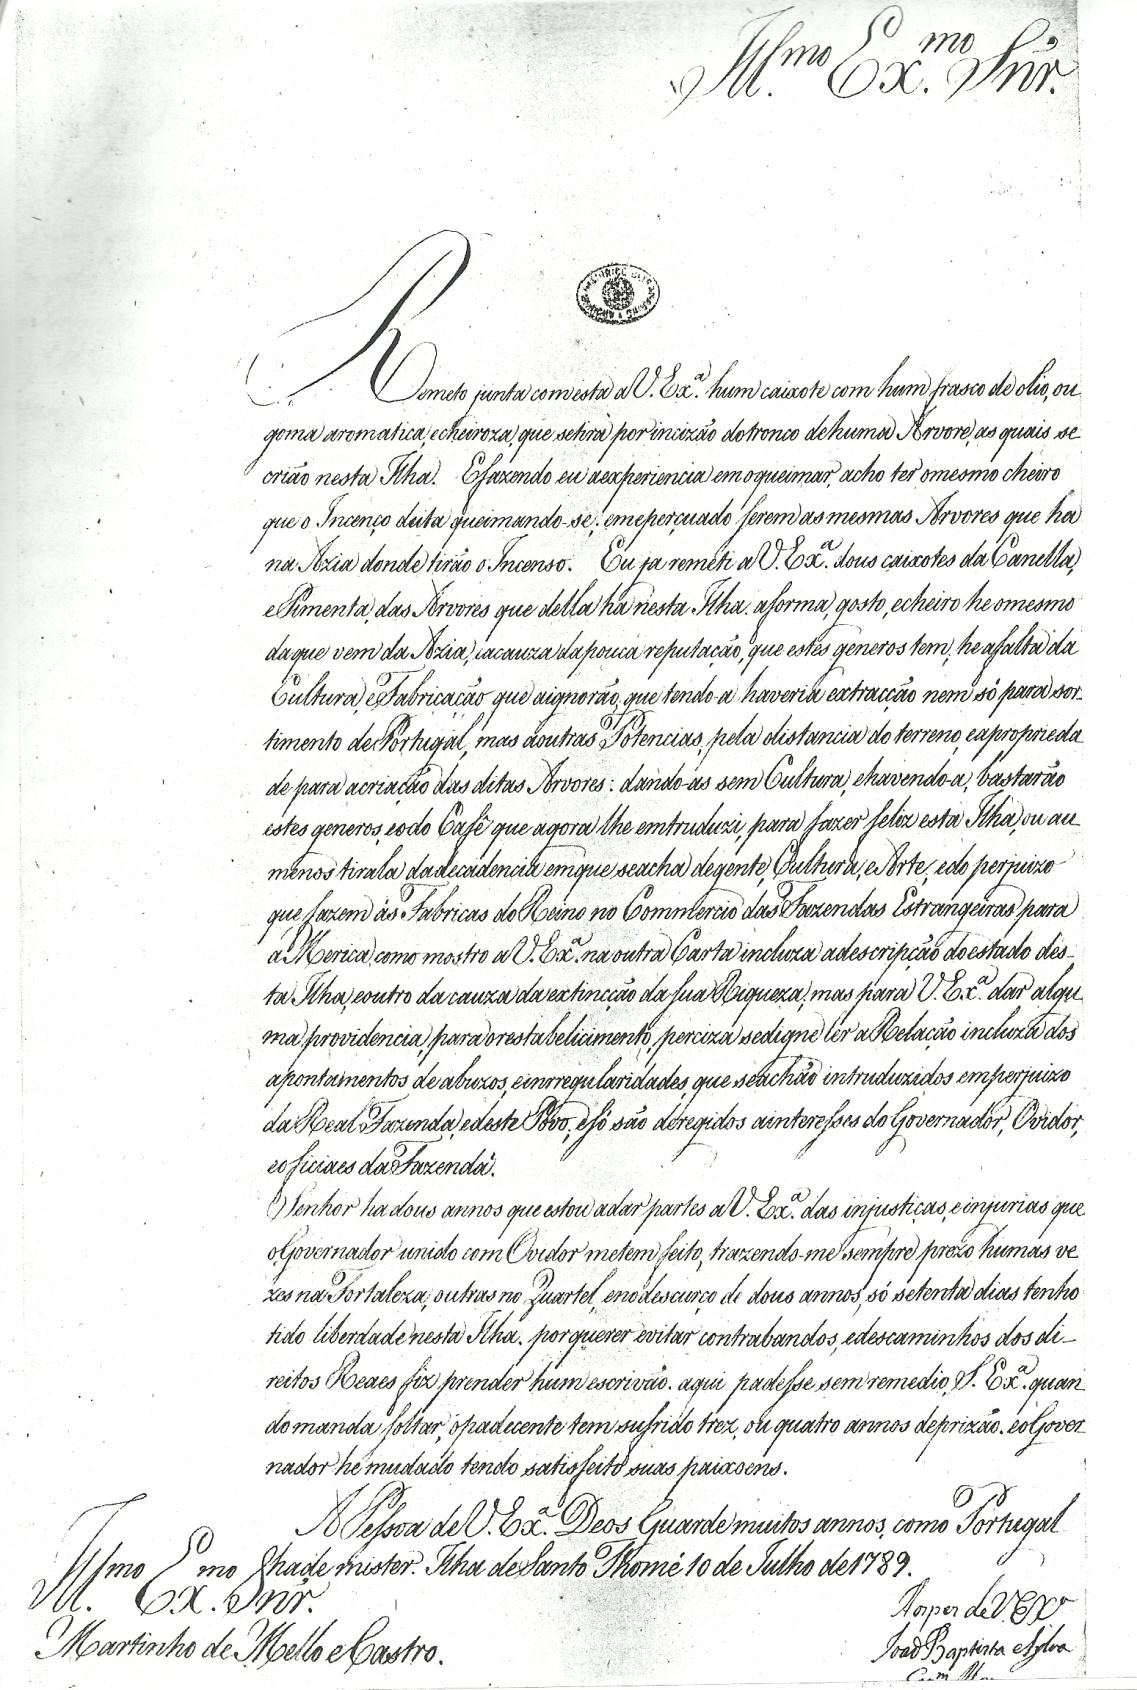 Ill.mo Ex.mo Snr.
Remeto junta com esta a V. Ex.a hum caixote com hum frasco de olio, ou
goma aromatica, e cheiroza, que se tira por incizão do tronco de huma Arvore, as quais se
crião nesta Ilha. E fazendo eu a experiencia em o queimar, acho ter o mesmo cheiro
que o Incenço deita queimando-se, e me perçuado serem as mesmas Arvores que ha
na Azia donde tirão o Incenso. Eu ja remeti a V. Ex.a dous caixotes da Canella,
e Pimenta, das Arvores que della ha nesta Ilha. a forma, gosto, e cheiro he o mesmo
da que vem da Azia, e a cauza da pouca reputação, que estes generos tem, he a falta da
Cultura, e Fabricação que a ignorão, que tendo-a haveria extracção nem só para sor-
timento de Portugal, mas a outras Potencias, pela distancia do terreno, e a proprieda
de para a criação das ditas Arvores: dando-as sem Cultura, e havendo-a, bastarão
estes generos, e o do Cafê que agora lhe entruduzi, para fazer feliz esta Ilha, ou au
menos tirala da decadencia em que se acha de gente, Cultura, e Arte, e do perjuizo
que fazem ás Fabricas do Reino no Commercio das Fazendas Estrangeiras para
a Merica, como mostro a V. Ex.a na outra Carta incluza a descripção do estado des-
ta Ilha, e outro da cauza da extincção da sua Riqueza, mas para V. Ex.a dar algu
ma providencia, para o restabelicimento, perciza se digne lêr a Relação incluza dos
apontamentos de abuzos, e inrregularidades, que se achão intruduzidos em perjuizo
da Real Fazenda, e deste Povo, e só são deregidos a interesses do Governador, Ovidor,
e oficiaes da Fazenda.
Senhor ha dous annos que estou a dar partes a V. Ex.a das injustiças, e injurias que
o Governador unido com Ovidor me tem feito, trazendo-me sempre prezo humas ve
zes na Fortaleza, outras no Quartel, e no descurço de dous annos, só setenta dias tenho
tido liberdade nesta Ilha. por querer evitar contrabandos, e descaminhos dos di-
reitos Reaes fiz prender hum escrivão. aqui padesse sem remedio, S. Ex.a quan
do manda soltar, o padecente tem sufrido trez, ou quatro annos de prizão. e o Gover
nador he mudado tendo satisfeito suas paixoens.
A Pessoa de V. Ex.a Deos Guarde muitos annos, como Portugal
ha de mister. Ilha de Santo Thomé 10 de Julho de 1789.
Ill.mo Ex.mo Snr.
Martinho de Mello e Castro.
João Baptista e Sylva